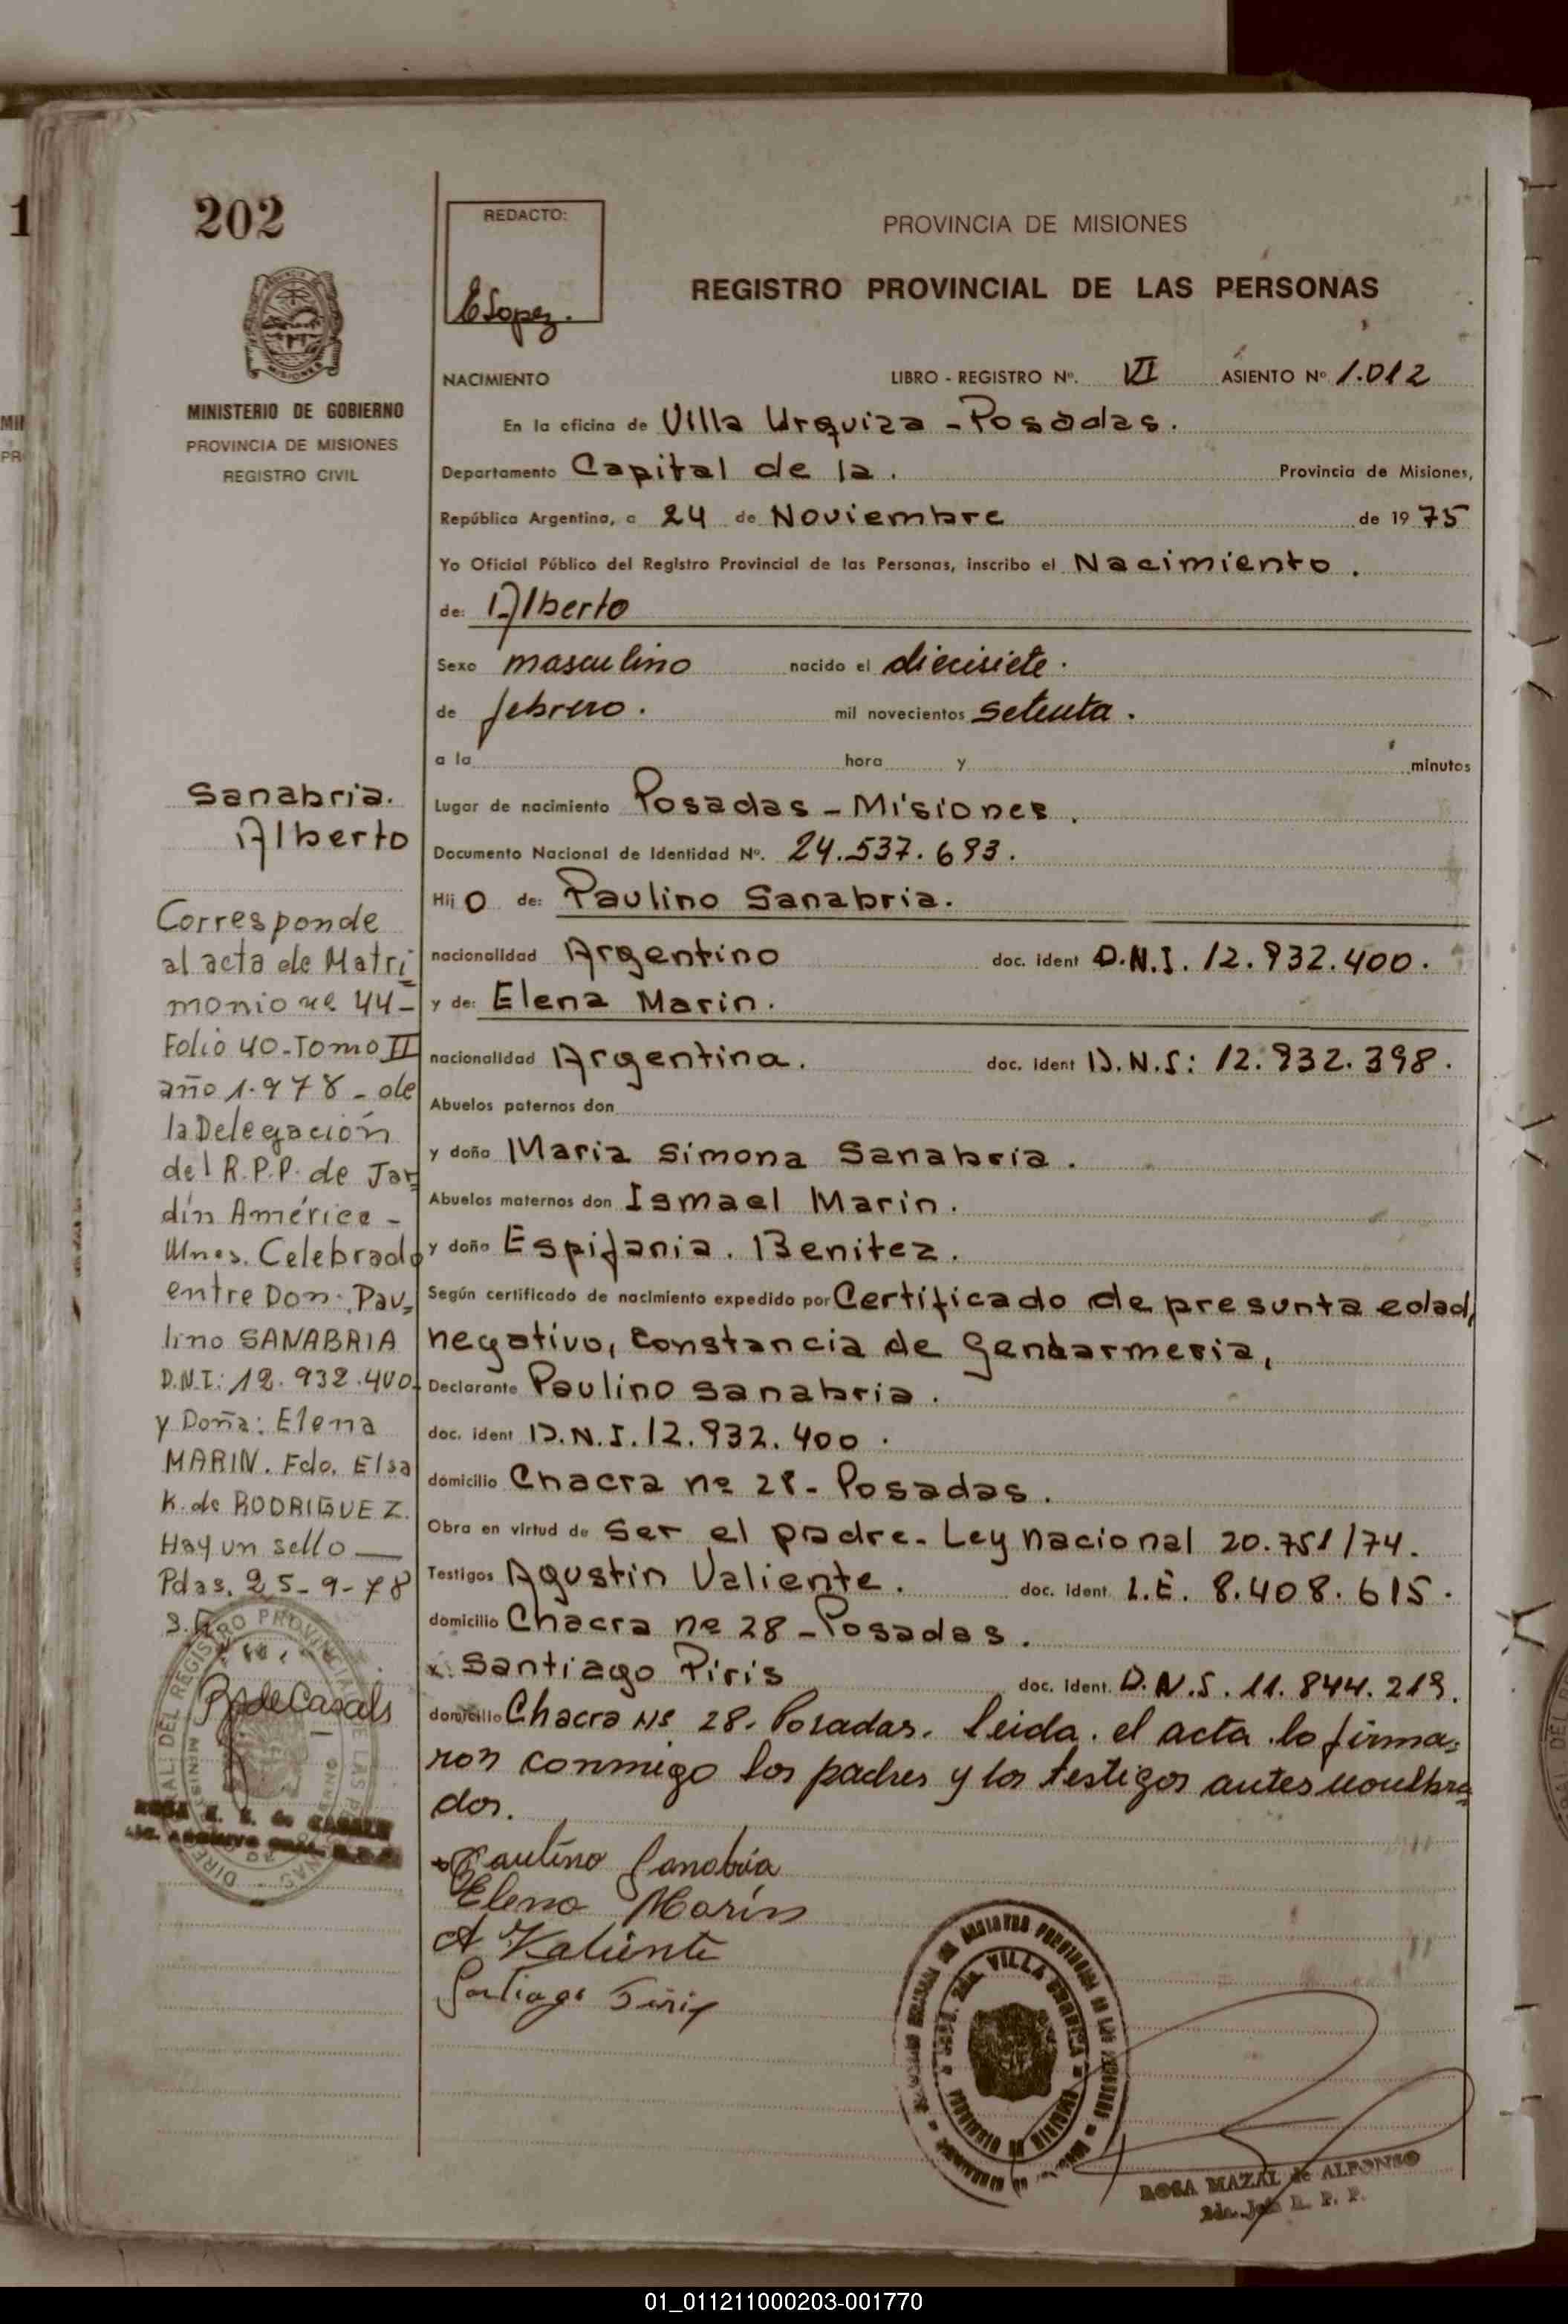 202
MINISTERIO DE GOBIERNO
PROVINCIA DE MISIONES
REGISTRO CIVIL
Sanabria.
Alberto
Corresponde
al acta de Matri
monio nº 44-
Folio 40-Tomo II
año 1.978 - de
la Delegación
del R.P.P. de Jar
dín América -
Mnes. Celebrado
entre Don: Pau
lino SANABRIA
D.N.I: 12.932.400
y Doña: Elena
MARIN. Fdo. Elsa
K. de RODRIGUEZ.
Hay un sello
Pdas. 25-9-78
REDACTO:
ELopez.
PROVINCIA DE MISIONES
REGISTRO PROVINCIAL DE LAS PERSONAS
NACIMIENTO LIBRO - REGISTRO Nº. VI ASIENTO Nº 1.012
En la oficina de Villa Urquiza - Posadas.
Departamento Capital de la. Provincia de Misiones,
República Argentina, a 24 de Noviembre de 1975
Yo Oficial Público del Registro Provincial de las Personas, inscribo el Nacimiento.
de: Alberto
Sexo masculino nacido el diecisiete.
de febrero. mil novecientos setenta.
a la hora y minutos
Lugar de nacimiento Posadas - Misiones.
Documento Nacional de Identidad Nº. 24.537.693.
Hijo de: Paulino Sanabria.
nacionalidad Argentino doc. ident D.N.I. 12.932.400.
y de: Elena Marin.
nacionalidad Argentina. doc. ident D.N.I: 12.932.398.
Abuelos paternos don
y doña Maria Simona Sanabria.
Abuelos maternos don Ismael Marin.
y doña Espifania. Benitez.
Según certificado de nacimiento expedido por Certificado de presunta edad,
negativo, Constancia de Gendarmeria,
Declarante Paulino Sanabria.
doc. ident D.N.I. 12.932.400.
domicilio Chacra nº 28- Posadas.
Obra en virtud de Ser el padre- Ley nacional 20.751/74.
Testigos Agustin Valiente. doc. ident. L.E. 8.408.615.
domicilio Chacra nº 28 - Posadas.
Santiago Piris doc. ident. D.N.I. 11.844.219.
domicilio Chacra Nº 28. Posadas. leida el acta lo firma
ron conmigo los padres y los testigos antes nombra
dos.
Paulino Sanabria
Elena Marín
A Valiente
Santiago Piris
ROSA MAZAL de ALFONSO
01_011211000203-001770